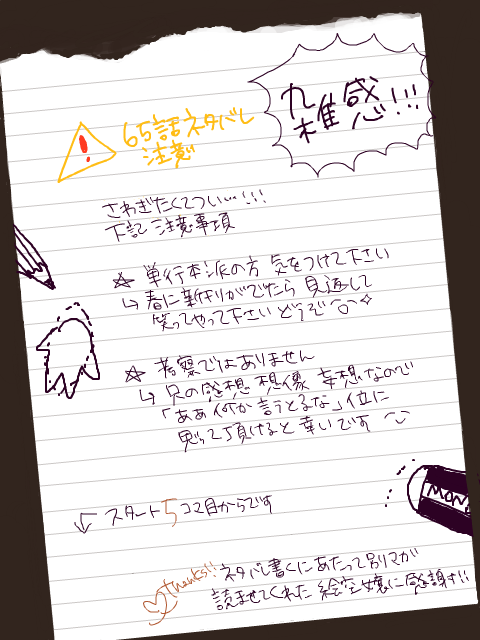 雑感!!!
65話ネタバレ
注意
さわぎたくてつい…!!!
下記注意事項
☆ 単行本派の方 気をつけて下さい
↳ 春に新刊がでたら 見返して
笑ってやって下さい どうぞ
☆ 考察ではありません
↳ 只の感想 想像 妄想なので
「ああ何か言うとるな」位に
思って頂けると幸いです
↓ スタート5コマ目からです
MONO
thanks!! ネタバレ書くにあたって別マガ
読ませてくれた 絵空嬢に感謝!!